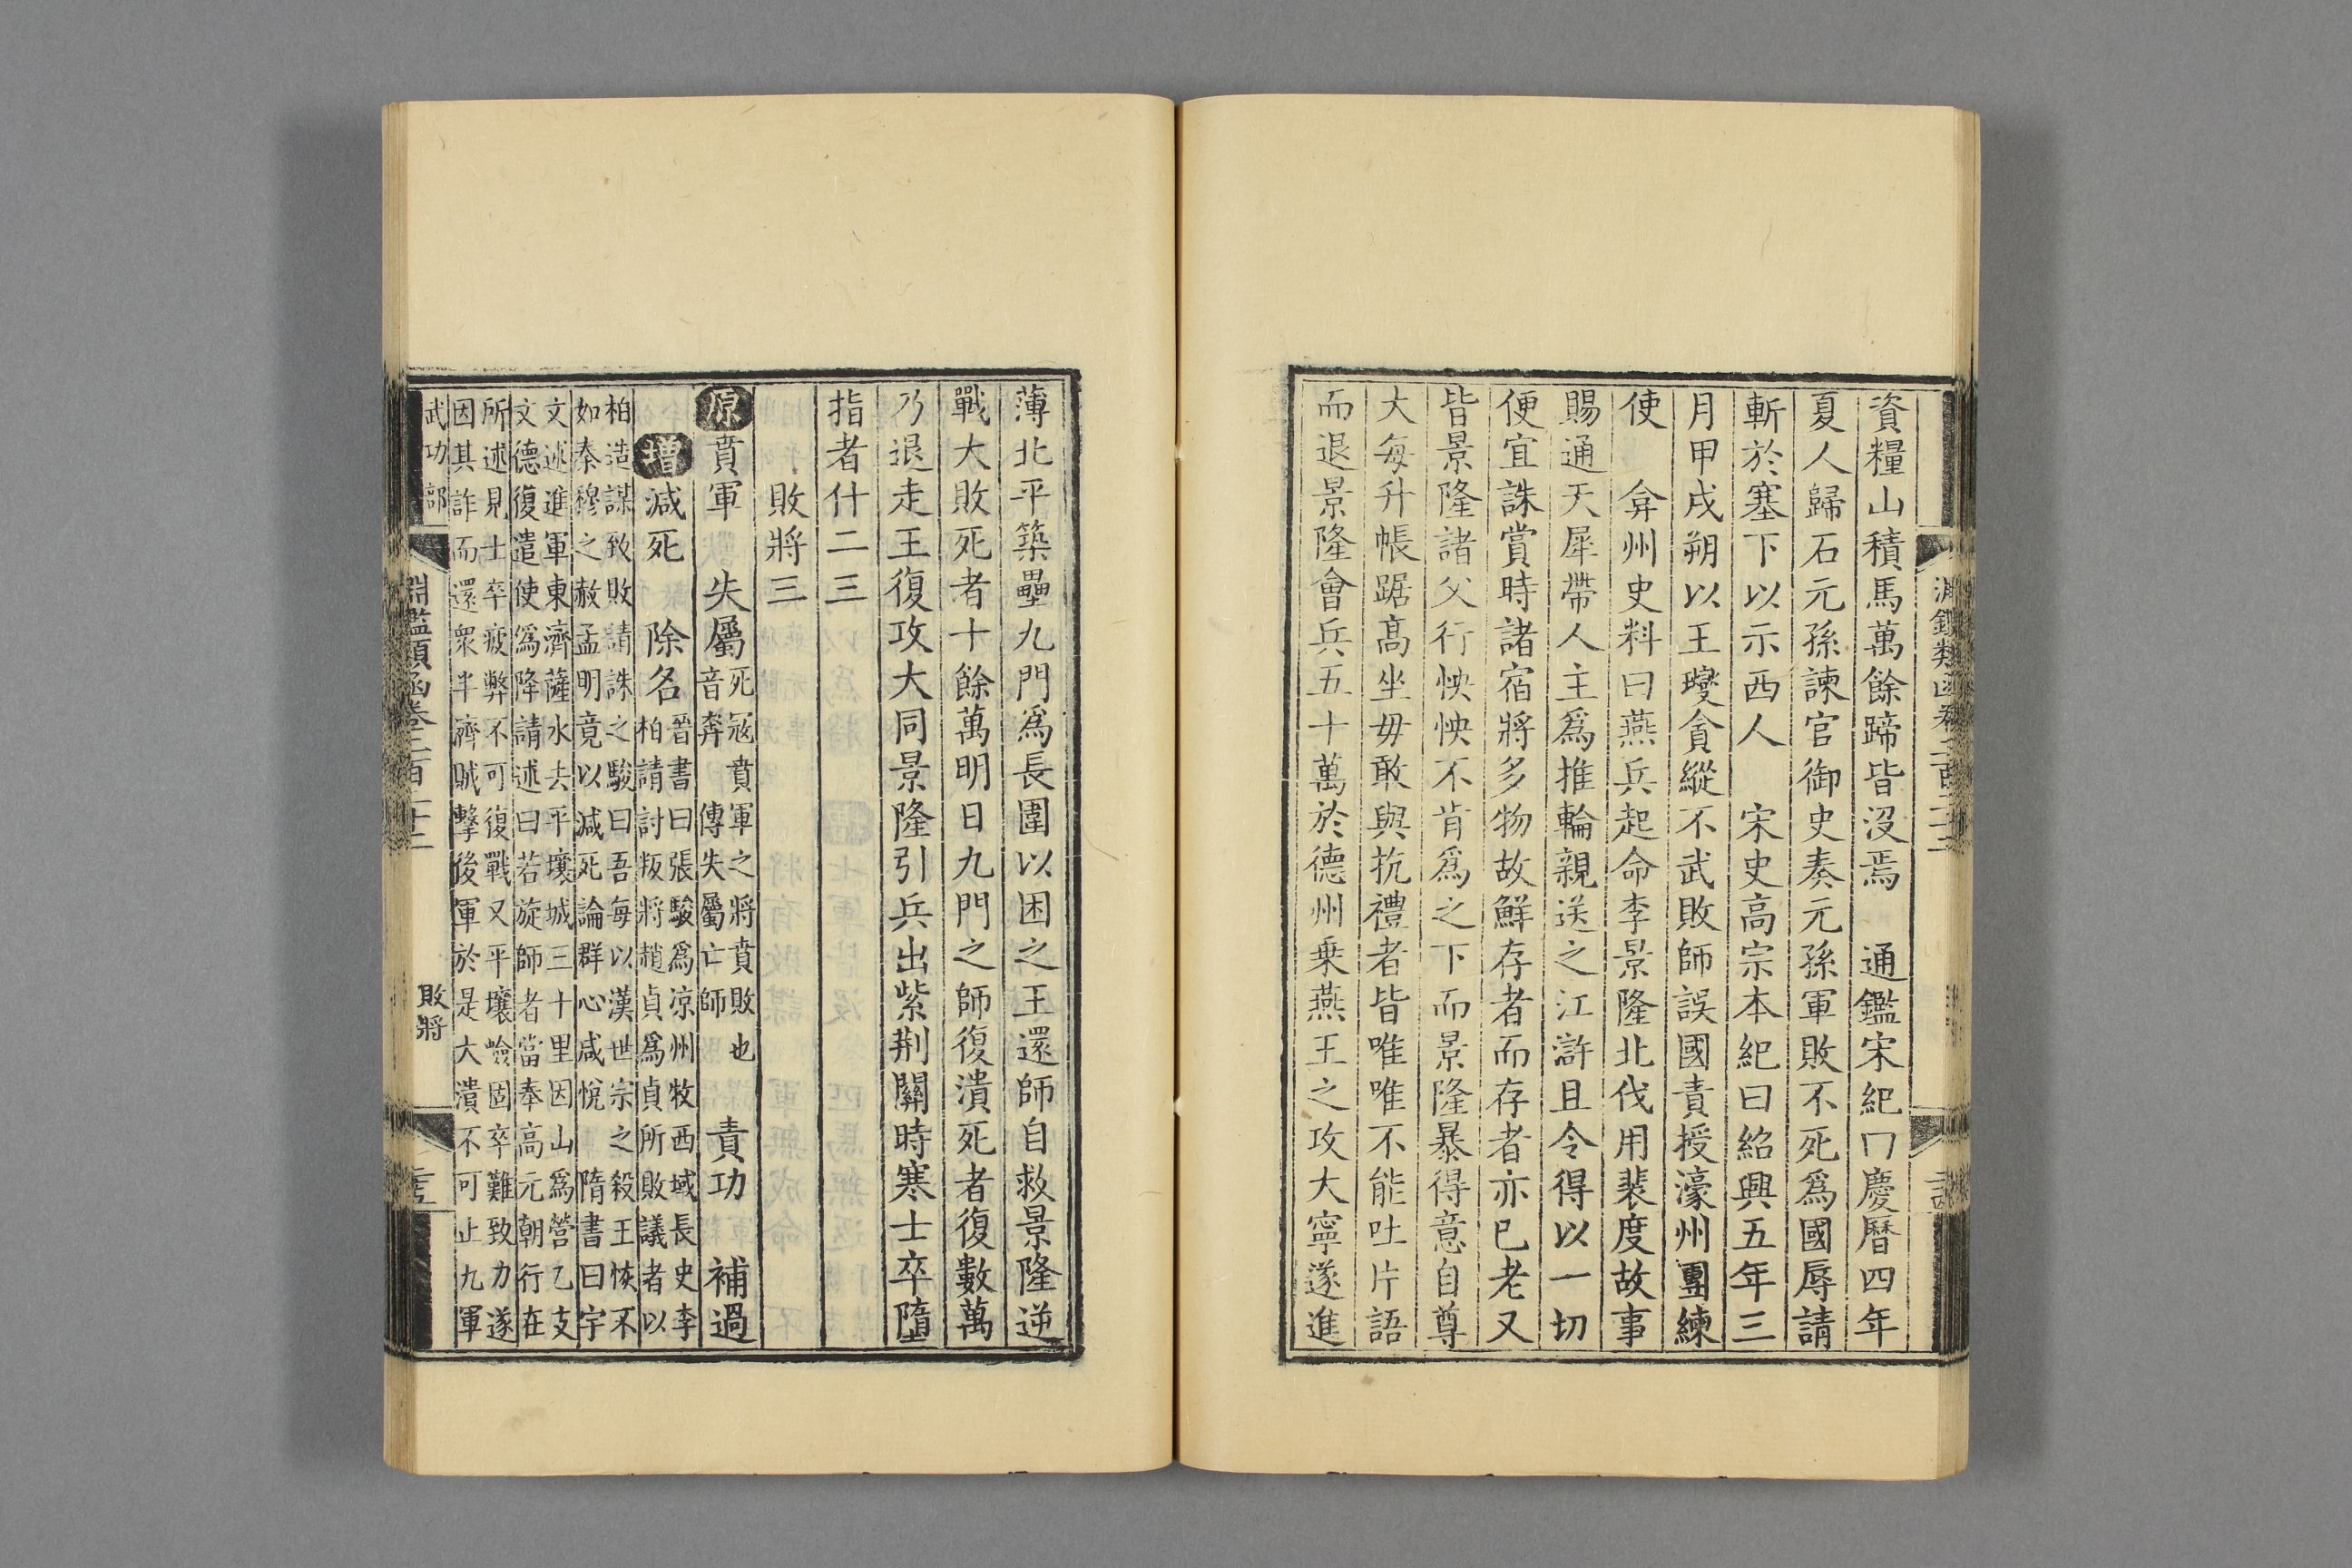 資糧山積馬萬餘蹄皆没焉　通鑑宋紀曰慶曆四年
夏人歸石元孫諫官御史奏元孫軍敗不死爲國辱請
斬於塞下以示西人　宋史高宗本紀曰紹興五年三
月甲戌朔以王𤫉貪縱不武敗師誤國責授濠州團練
使　弇州史料曰燕兵起命李景隆北伐用裴度故事
賜通天犀帶人主爲推輪親送之江滸且令得以一切
便宜誅賞時諸宿將多物故鮮存者而存者亦已老又
皆景隆諸父行怏怏不肯爲之下而景隆暴得意自尊
大每升帳踞高坐毋敢與抗禮者皆唯唯不能吐片語
而退景隆會兵五十萬於德州乗燕王之攻大寧遂進
薄北平築壘九門爲長圍以困之王還師自救景隆逆
戰大敗死者十餘萬明日九門之師復潰死者復數萬
乃退走王復攻大同景隆引兵出紫荆關時寒士卒墮
指者什二三
敗將三
原賁軍　失屬死寇　賁軍之將賁敗也
音奔　傳失屬亡師　責功　補過
增減死　除名晉書曰張駿爲凉州牧西域長史李
柏請討叛將趙貞爲貞所敗議者以
柏造謀致敗請誅之駿曰吾每以漢世宗之殺王恢不
如秦穆之赦孟明竟以減死論群心咸悅　隋書曰宇
文述進軍東濟薩水去平壤城三十里因山爲營乙支
文德復遣使爲降請述曰若旋師者當奉高元朝行在
所述見士卒疲弊不可復戰又平壤嶮固卒難致力遂
因其詐而還衆半濟賊擊後軍於是大潰不可止九軍
武功部
淵鑑類函卷二百二十二
敗將